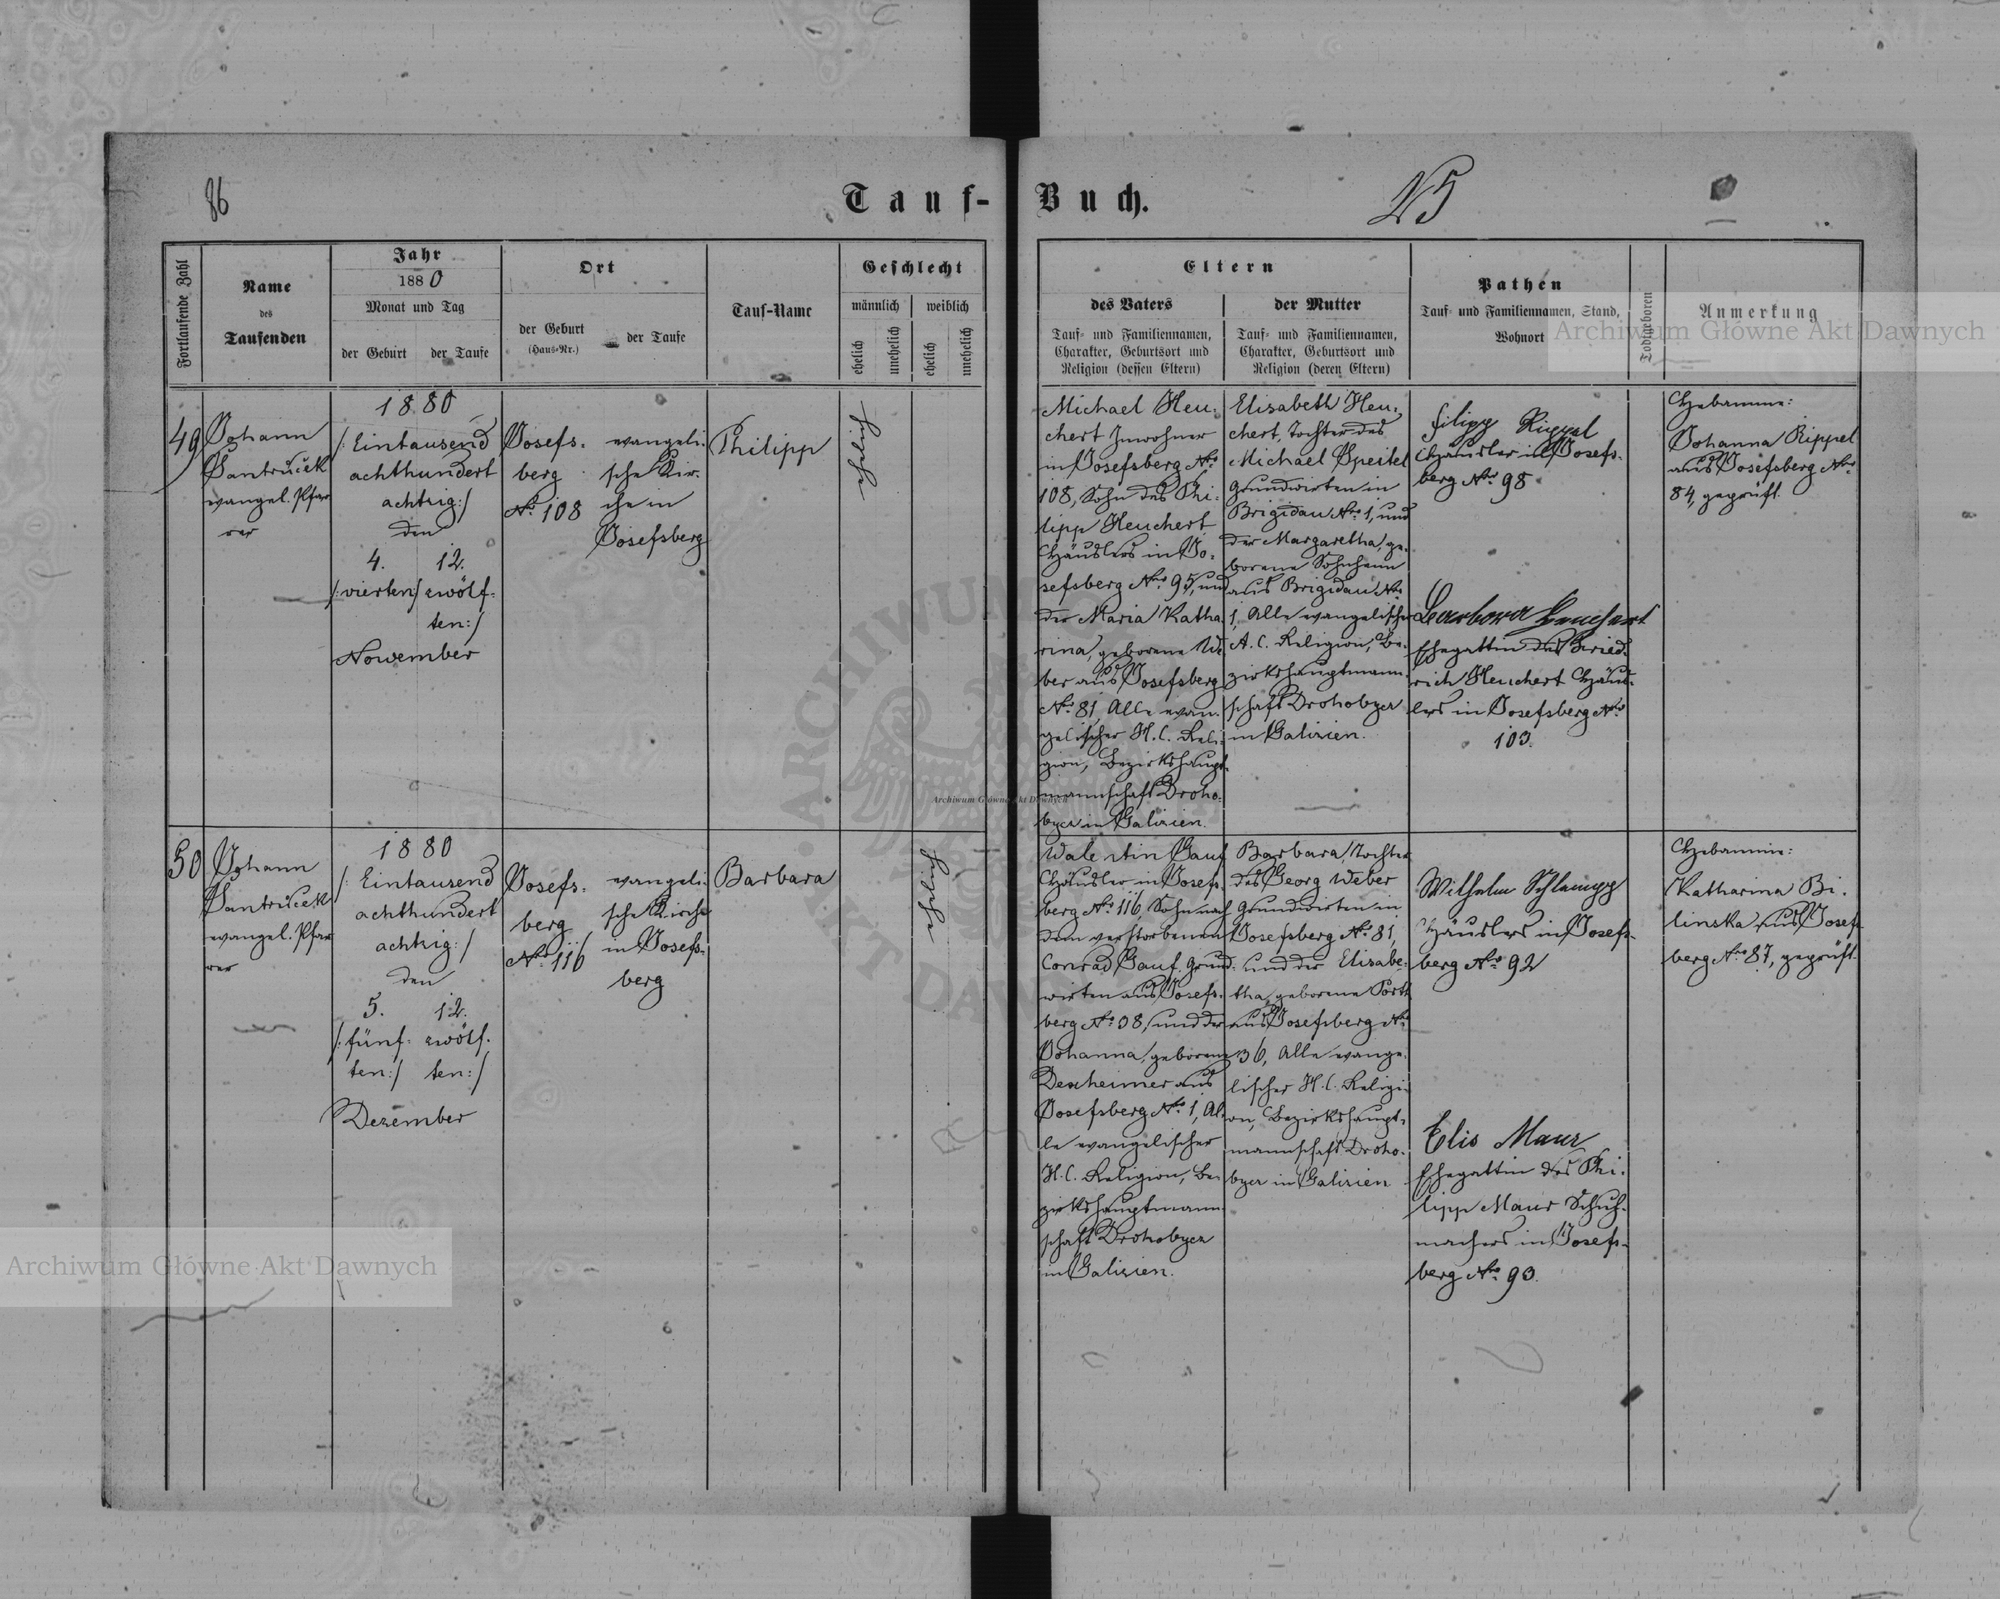 86
Tauf-Buch.
25
Fortlaufende Zahl
Name
des
Taufenden
Jahr
1880
Monat und Tag
der Geburt
der Taufe
Ort
der Geburt
(Haus-Nr.)
der Taufe
Tauf-Name
Geschlecht
männlich
weiblich
ehelich
unehelich
ehelich
unehelich
Eltern
des Vaters
Tauf- und Familiennamen,
Charakter, Geburtsort und
Religion (dessen Eltern)
der Mutter
Tauf- und Familiennamen,
Charakter, Geburtsort und
Religion (deren Eltern)
Pathen
Tauf- und Familiennamen, Stand,
Wohnort
Todtgeboren
Anmerkung
49
Johann
Jantruček
evangel. Pfar
rer
1880
/: Eintausend
achthundert
achtzig :/
den
4. 12.
/: vierten / zwölf-
ten :/
November
Josefs-
berg
No. 108
evangeli-
sche Kir-
che in
Josefsberg
Philipp
ehelich
Michael Heu-
chert Inwohner
in Josefsberg Nro
108, Sohn des Phi-
lipp Heuchert
Häuslers in Jo-
sefsberg Nro 95, und
der Maria Katha
rina, geborene We
ber aus Josefsberg
No. 81, Alle evan-
gelischer H. C. Reli-
gion, Bezirkshaupt-
mannschaft Droho-
bycz in Galizien.
Elisabeth Heu-
chert, Tochter des
Michael Speitel
Grundwirten in
Brigidau Nro. 1, und
der Margaretha, ge-
borene Sohnheim
aus Brigidau Nro
1, Alle evangelischer
A. C. Religion, Be-
zirkshauptmann-
schaft Drohobycz
in Galizien.
Filipp Rippel
Häusler in Josefs-
berg Nro 98
Heuchert
Ehegattin des Fried-
rich Heuchert Häus-
lers in Josefsberg Nro
103.
Hebamme:
Johanna Rippel
aus Josefsberg Nro
84, geprüft.
50
Johann
Jantruček
evangel. Pfar
rer
1880
/: Eintausend
achthundert
achtzig :/
den
5. 12.
/: fünf- zwölf-
ten :/ ten :/
Dezember
Josefs-
berg
No. 116
evangeli-
sche Kirche
in Josefs-
berg
Barbara
ehelich
Gauf
Häusler in Josefs-
berg No. 116, Sohn nach
dem verstorbenen
Conrad Gauf Grund-
wirten aus Josefs-
berg No. 38, und der
Johanna, geborene
Dexheimer aus
Josefsberg No. 1, Al-
le evangelischer
H. C. Religion, Be-
zirkshauptmann-
schaft Drohobycz
in Galizien.
Barbara, Tochter
des Georg Weber
Grundwirten in
Josefsberg No. 81,
und der Elisabe-
tha, geborene Porth
aus Josefsberg Nro
36, Alle evange-
lischer H. C. Religi-
on, Bezirkshaupt-
mannschaft Droho-
bycz in Galizien
Wilhelm Schlampp
Häuslers in Josefs-
berg Nro 92
Elis Maur
Ehegattin des Phi-
lipp Maur Schuh-
machers in Josefs-
berg Nro 93.
Hebamme:
Katharina Bi-
linska aus Josefs-
berg Nro 87, geprüft.
Archiwum Główne Akt Dawnych
Archiwum Główne Akt Dawnych
Archiwum Główne Akt Dawnych